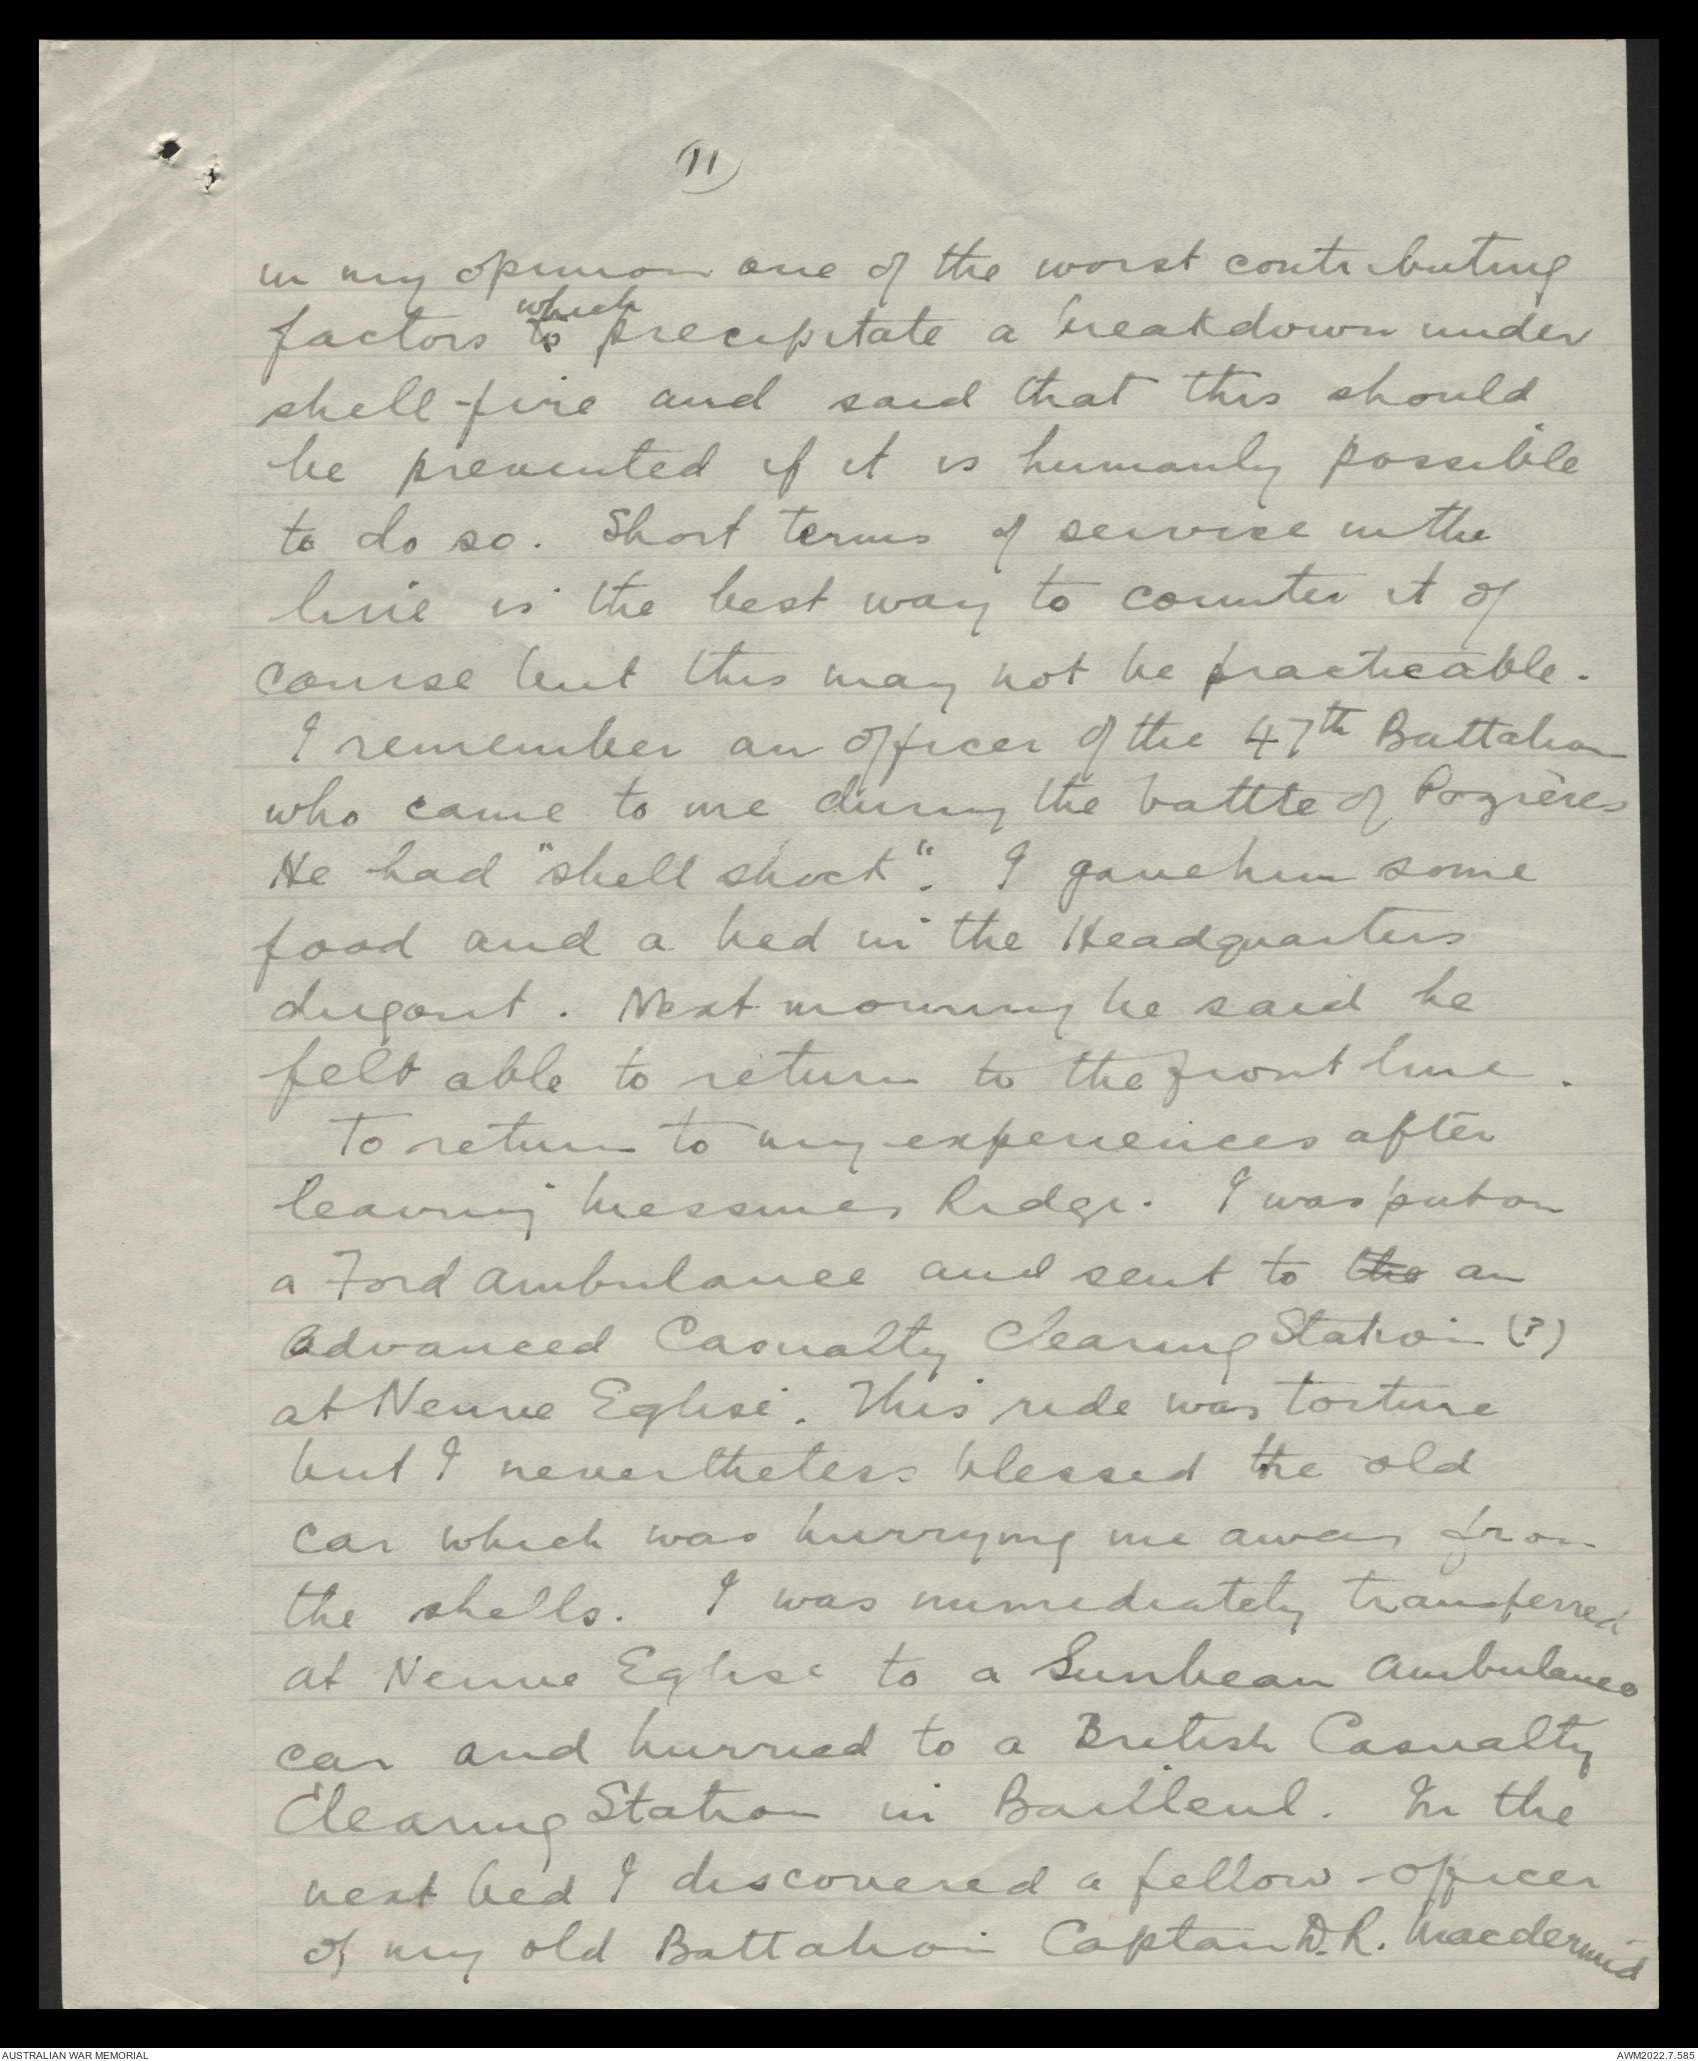 11
in my opinion one of the worst contributing
which
factors to precipitate a breakdown under
shell-fire and said that this should
be prevented if it is humanly possible
to do so. Short terms of service in the
line is the best way to counter it of
course but this may not be practicable.
I remember an officer of the 47th Battalion
who came to me during the battle of Pozières
He had "shell shock". I gave him some
food and a bed in the Headquarters
dugout. Next morning he said he
felt able to return to the front line.
To return to my experiences after
leaving Messines Ridge. I was put on
a Ford ambulance and sent to the an
Advanced Casualty Clearing Station (?)
at Neuve Eglise. This ride was torture
but I nevertheless blessed the old
car which was hurrying me away from
the shells. I was immediately transferred
at Neuve Eglise to a Sunbeam Ambulance
car and hurried to a British Casualty
Clearing Station in Bailleul. In the
next bed I discovered a fellow-officer
of my old Battalion Captain D.R. Macdermid
AUSTRALIAN WAR MEMORIAL
AWM2022.7.585